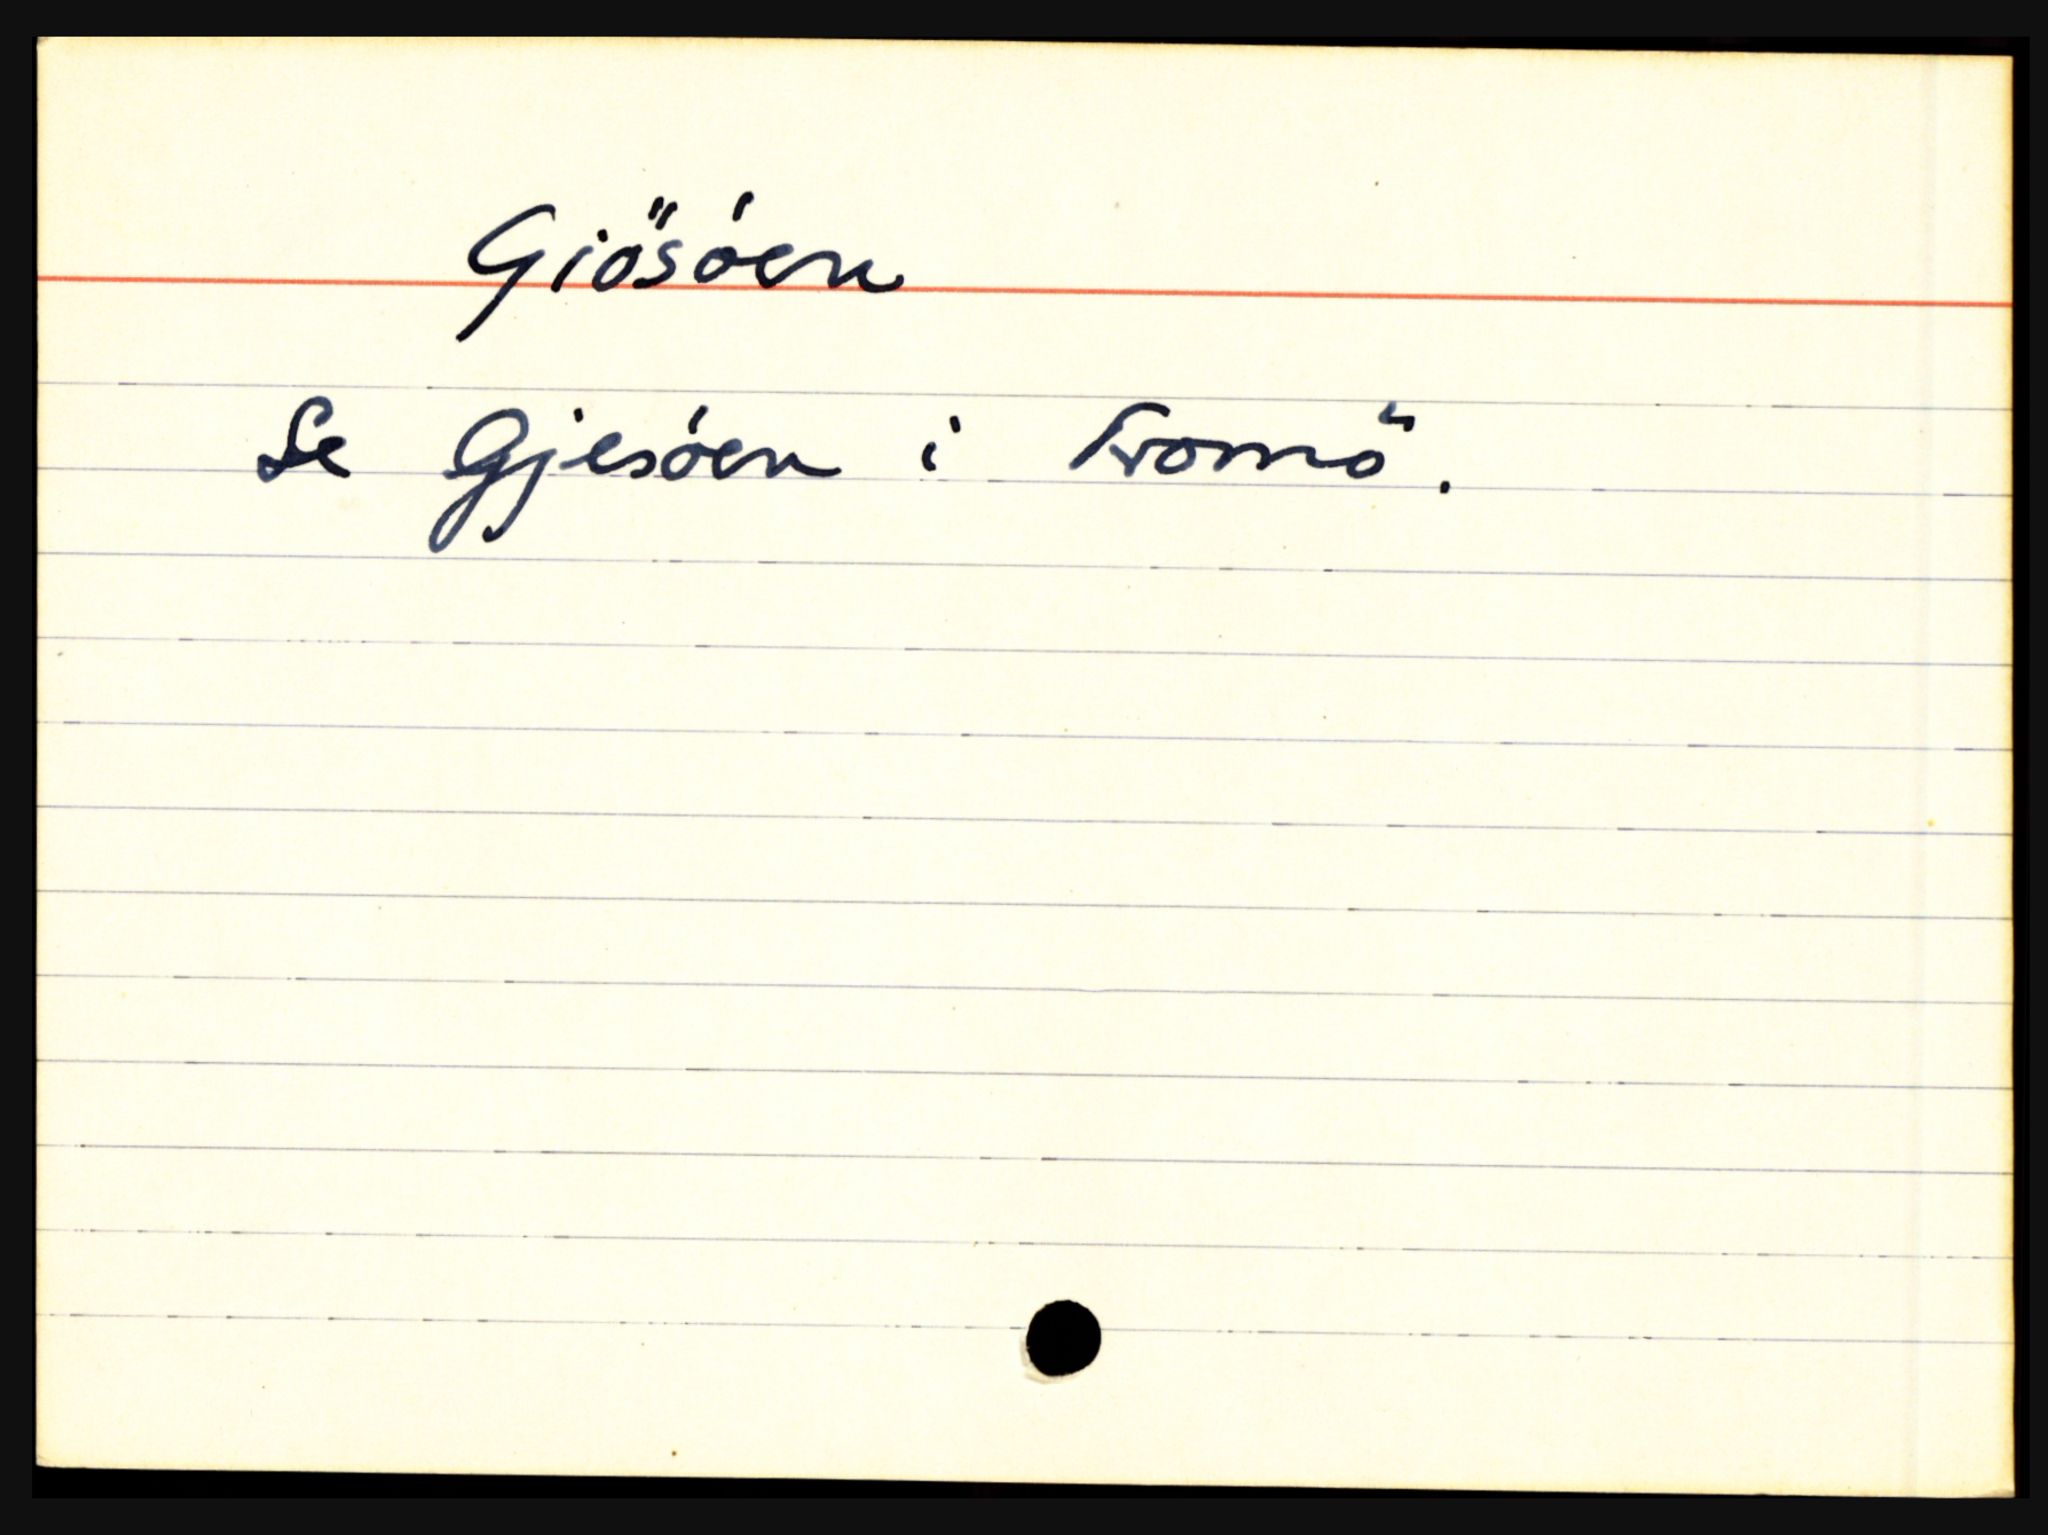 Giösóen
Se Gjesóen i Tromö.